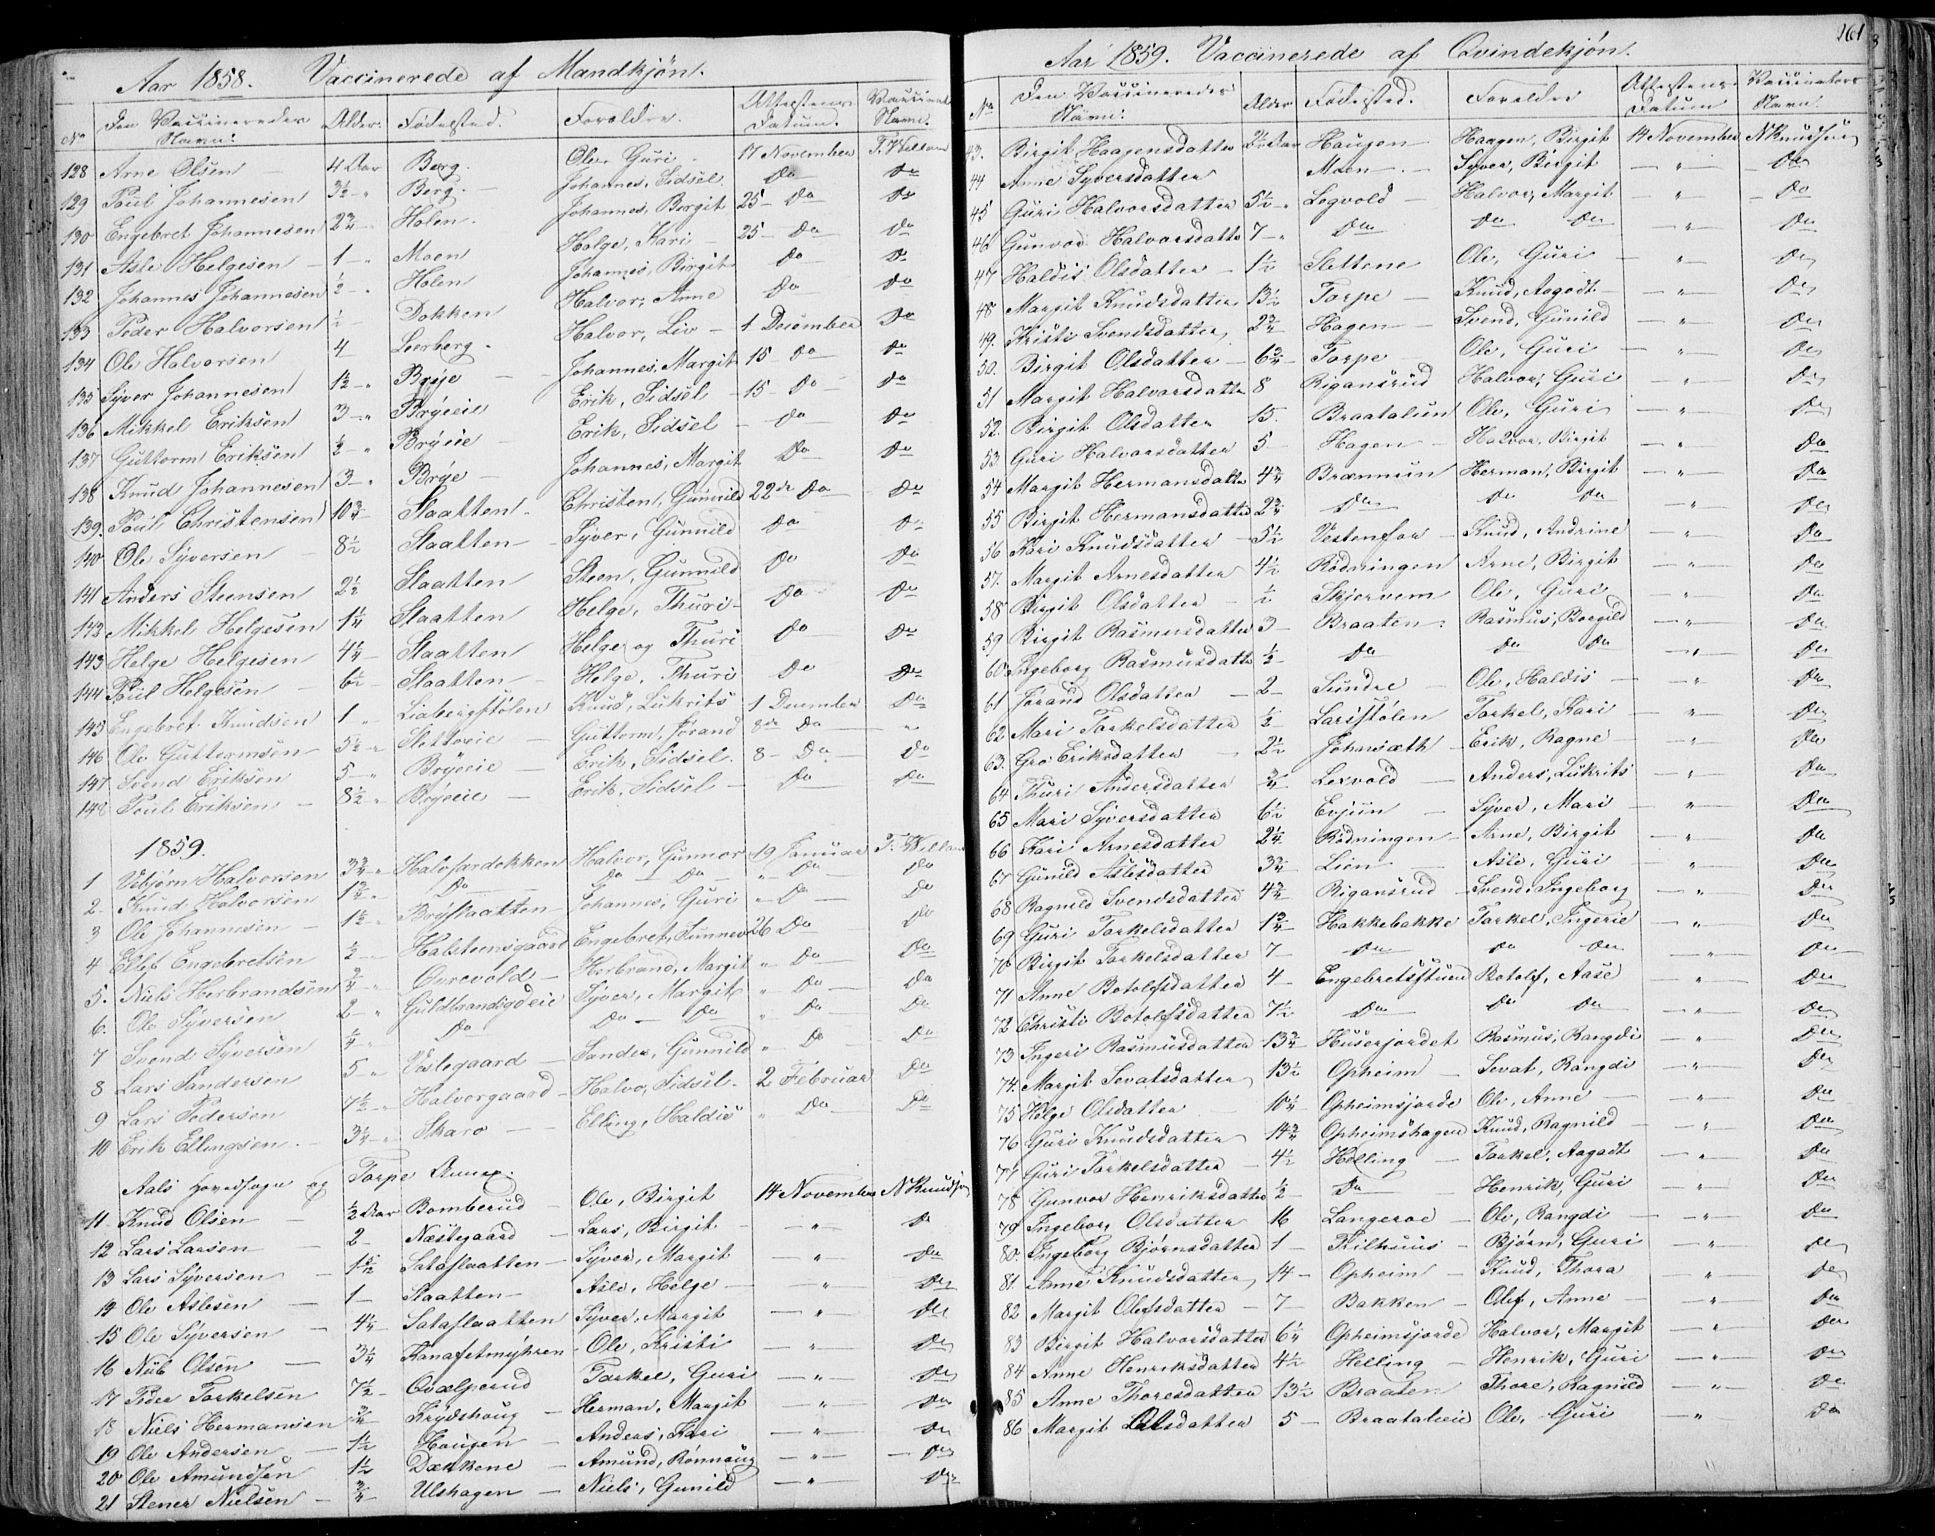 Aar 1858. Vaccinerede af Mandkjön.
No Den Vaccineredes Navn. Alder. Födested. Forældre. Attestens Datum. Navn.
128 Arne Olsen 4 Aar Berg. Ole, Guri 17 November
129 Paul Johannesen 3½ " Berg. Johannes, Sidsel Do Do
130 Engebret Johannesen Holen. Johannes, Birgit 25 Do Do
131 Asle Helgesen 1 " Moen Helge, Kari 25 Do Do
132 Johannes Johannesen ½ " Holen Johannes, Birgit Do Do
133 Peder Halvorsen ½ Dokken Halvor, Anne Do Do
134 Ole Halvorsen 4 Leerberg. Halvor, Liv 1 December Do
135 Syver Johannesen 1½ " Brøje Johannes, Margit 15 Do Do
136 Mikkel Eriksen 3 " Brøjeie Erik, Sidsel 15 Do Do
137 Guttorm Eriksen ½ " Brøjeie Erik, Sidsel Do Do
138 Knud Johannesen 3 " Brøje Johannes, Margit Do Do
139. Paul Christensen 10¾ Slaatten Christen, Gunnild 22de Do Do
140 Ole Syversen 8½ Slaatten Syver, Gunnild Do Do
141 Anders Steensen 2½ Slaatten Steen, Gunnild Do Do
142 Mikkel Helgesen 1¼ Slaatten Helge, Thuri Do Do
143 Helge Helgesen 4¼ Slaatten Helge og Thuri Do Do
144 Paul Helgesen 6½ Slaatten Helge, Thuri Do Do
145 Engebret Knudsen 1 " Liabergstølen Knud, Lukrits 1 December Do
146 Ole Guttormsen 5½ " Guttorm, Jørand 8de Do "
147 Svend Eriksen 5 " Brøjeie Erik, Sidsel. 8 Do Do
148 Paul Eriksen 8½ " Brøjeie Erik, Sidsel Do Do
1859.
1 Vebjørn Halvorsen 3¾ " Halvfardokken Halvor, Gunnor 19 Januar
2. Knud Halvorsen " Do Do Do " Do Do
3 Ole Johannesen " Brøslaatten Johannes, Guri " Do Do
4 Ellef Engebretsen ½ Halsteensgaard Engebret, Sunnev 26 Do Do
5. Niels Herbrandsen ¾ " Qvrevold Herbrand, Margit " Do Do
6. Ole Syversen 2 " Guldbrandsgdeie Syver, Margit " Do Do
7 Svend Syversen Do Do Do " Do Do
8 Lars Sandersen 5 " Veslegaard Sander, Gunnild " Do Do
9 Lars Pedersen 7½ " Halvorgaard Halvo, Sidsel. 2 Februar Do
10 Erik Ellingsen. " Skaro Elling, Haldis " Do Do
Aals Hovedsogn og Torpe Annex.
11 Knud Olsen ½ Aar Bomberud Ole, Birgit 14 November N Knudsen
12 Lars Larsen 2 Næstegaard Lars, Birgit " Do
13 Lars Syversen 1½ Sataslaatten Syver, Margit " Do
14 Ole Aslesen 1 Slaatten Asle, Helge " Do
15 Ole Syversen 4¼ Sataslaatten Syver, Margit " Do
16 Nub Olsen 3¼ Kanafetmyhren Ole, Kristi " Do
17 Peder Torkelsen 7½ Qvælperud Torkel, Guri " Do
18 Niels Hermansen ¾ Krydshoug Herman, Margit " Do
19 Ole Andersen 1½ Haugen Anders, Kari " Do
20 Ole Amundsen 1½ Dækkene Amund, Rønnoug " Do
21 Stener Nielsen ¾ Ulshagen Niels, Gunild " Do
161
Aar 1859. Vaccinerede af Qvindekjøn.
No Den Vaccineredes Navn. Alder Födested. Forældre Attestens Datum Vaccinators Navn.
43. Birgit Haagensdatter Aar Haugen Haagen, Birgit 14 November N Knudsen
44 Anne Syversdatter Moen Syver, Birgit " Do
45 Guri Halvorsdatter 5½ Legvold Halvor, Margit " Do
46 Gunvor Halvorsdatter 7 Do Do Do " Do
47 Haldis Olsdatter 1½ Slettene Ole, Guri " Do
48 Margit Knudsdatter 13½ Torpe Knud, Aagodt " Do
49. Kristi Svendsdatter 2¾ Hagen Svend, Gunild " Do
50. Birgit Olsdatter 6¾ Torpe Ole, Guri " Do
51 Margit Halvorsdatter 8 Rigansrud Halvor, Guri " Do
52. Birgit Olsdatter 15 Braatalien Ole, Guri " Do
53 Guri Halvorsdatter 5 Hagen Halvor, Birgit " Do
54 Margit Hermansdatter 4¾ Brænmun Herman, Birgit " Do
55 Birgit Hermansdatter 2¾ Do Do Do " Do
56 Kari Knudsdatter 5½ Vestenfor Knud, Andrine " Do
57. Margit Arnesdatter 4½ Rödningen Arne, Birgit " Do
58 Birgit Olsdatter ½ Skjervem Ole, Guri " Do
59 Birgit Rasmusdatter 3 Braaten Rasmus, Borgild " Do
60 Ingeborg Rasmusdatter ½ Do Do Do " Do
61 Jørand Olsdatter 2 Sundre Ole, Haldis " Do
62 Mari Torkelsdatter ½ Larsstølen Torkel, Kari " Do
63. Gro Eriksdatter 2½ Johansæth Erik, Ragne " Do
64 Thuri Andersdatter ¾ Lexvold Anders, Lukrits " Do
65 Mari Syversdatter 6½ Evjün Syver, Mari " Do
66 Kari Arnesdatter 2¼ Rödningen Arne, Birgit " Do
67 Gunild Aslesdatter 3¾ Lien Asle, Guri " Do
68 Ragnild Svendsdatter 4¾ Rigansrud Svend, Ingeborg " Do
69 Guri Torkelsdatter 1¾ Hakkebakke Torkel, Ingerie " Do
70 Birgit Torkelsdatter 7 Do Do Do " Do
71 Anne Botolfsdatter 4 Engebretsstuen Botolf, Aase " Do
72 Christi Botolfsdatter 7½ Do Do Do " Do
73 Ingeri Rasmusdatter 13¾ Huserjordet Rasmus, Rangdi " Do
74. Margit Sevatsdatter 13½ Opheim Sevat, Rangdi " Do
75 Helge Olsdatter 10¼ Opheimsjorde Ole, Anne " Do
76 Guri Knudsdatter 14¾ Opheimshagen Knud, Ragnild " Do
77 Guri Torkelsdatter 4½ Helling Torkel, Aagodt " Do
78 Gunvor Henriksdatter ½ Do Henrik, Guri " Do
79 Ingeborg Olsdatter 16 Langeroe Ole, Rangdi " Do
80. Ingeborg Bjørnsdatter 1 Kilhuus Bjørn, Guri " Do
81 Anne Knudsdatter 14 Opheim Knud, Thora " Do
82 Margit Olefsdatter 7 Bakken Olef, Anne " Do
83 Birgit Halvorsdatter 6¼ Opheimsjorde Halvor, Margit " Do
84 Anne Henriksdatter 4½ Helling Henrik, Guri " Do
85 Anne Thoresdatter 13½ Braaten Thore, Ragnild " Do
86 Margit Olsdatter 5 Braatalieie Ole, Guri " Do